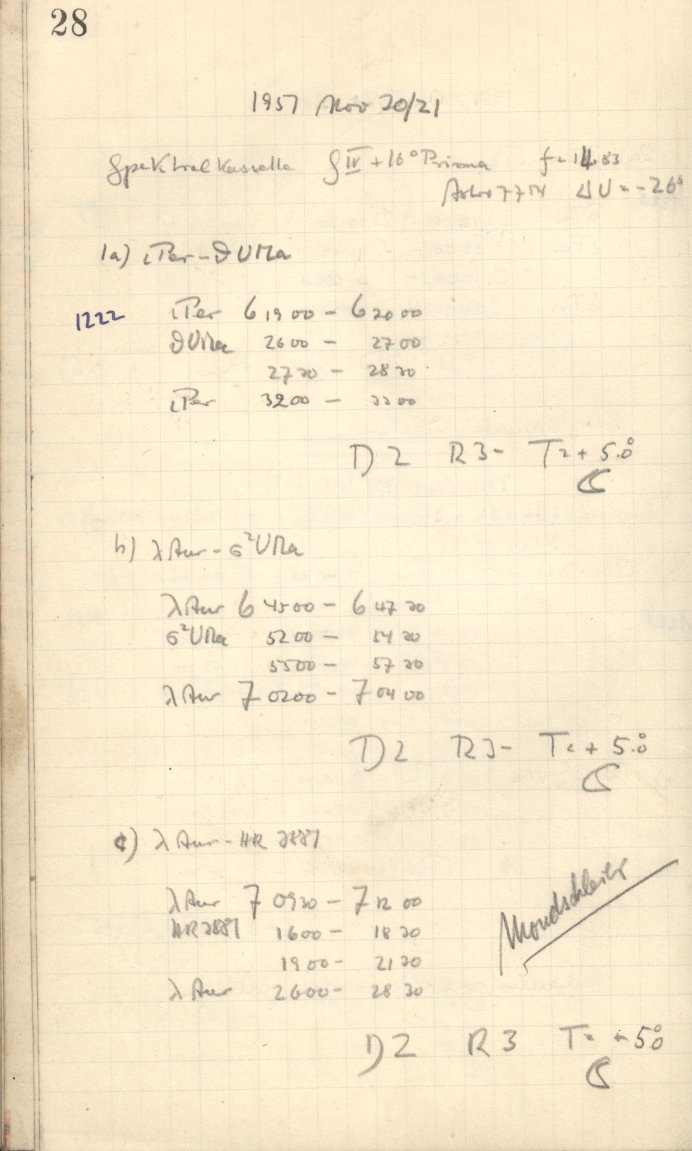 28
1957 Nov 20/21
Spektralkassette ζ IV + 16° Prisma f = 14.83
Astro 7754 ΔU = -26ˢ
1a) ι Per - ϑ UMa
1222 ι Per 6 19 00 - 6 20 00
ϑ UMa 26 00 - 27 00
27 30 - 28 30
ι Per 32 00 - 33 00
D 2 R 3- T = + 5.°0
☾
b) λ Aur - σ² UMa
λ Aur 6 45 00 - 6 47 30
σ² UMa 52 00 - 54 30
55 00 - 57 30
λ Aur 7 02 00 - 7 04 00
D 2 R 3- T = + 5.°0
☾
c) λ Aur - HR 3881
λ Aur 7 09 30 - 7 12 00
HR 3881 16 00 - 18 30
19 00 - 21 30
λ Aur 26 00 - 28 30
Mondschleier
D 2 R 3 T = + 5°0
☾